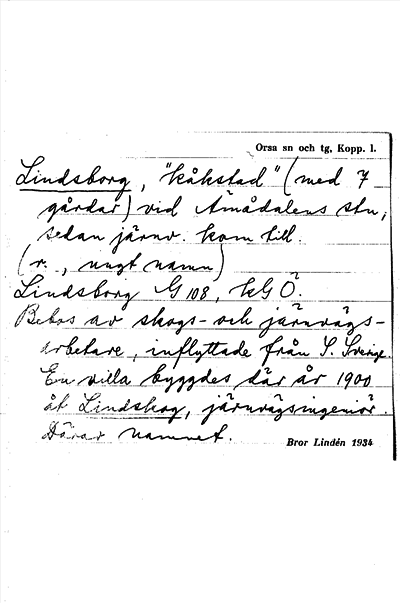 Orsa sn och tg, Kopp. l.
Lindsborg, "kåkstad" (med 7
gårdar) vid Åmådalens stn,
sedan järnv. kom till.
(r. , nugt namn)
Lindsborg G 108, kG Ö.
Bebos av skogs- och järnvägs-
arbetare, inflyttade från S. Sverige.
En villa byggdes där år 1900
åt Lindskog, järnvägsingeniör.
Därav namnet.
Bror Lindén 1934